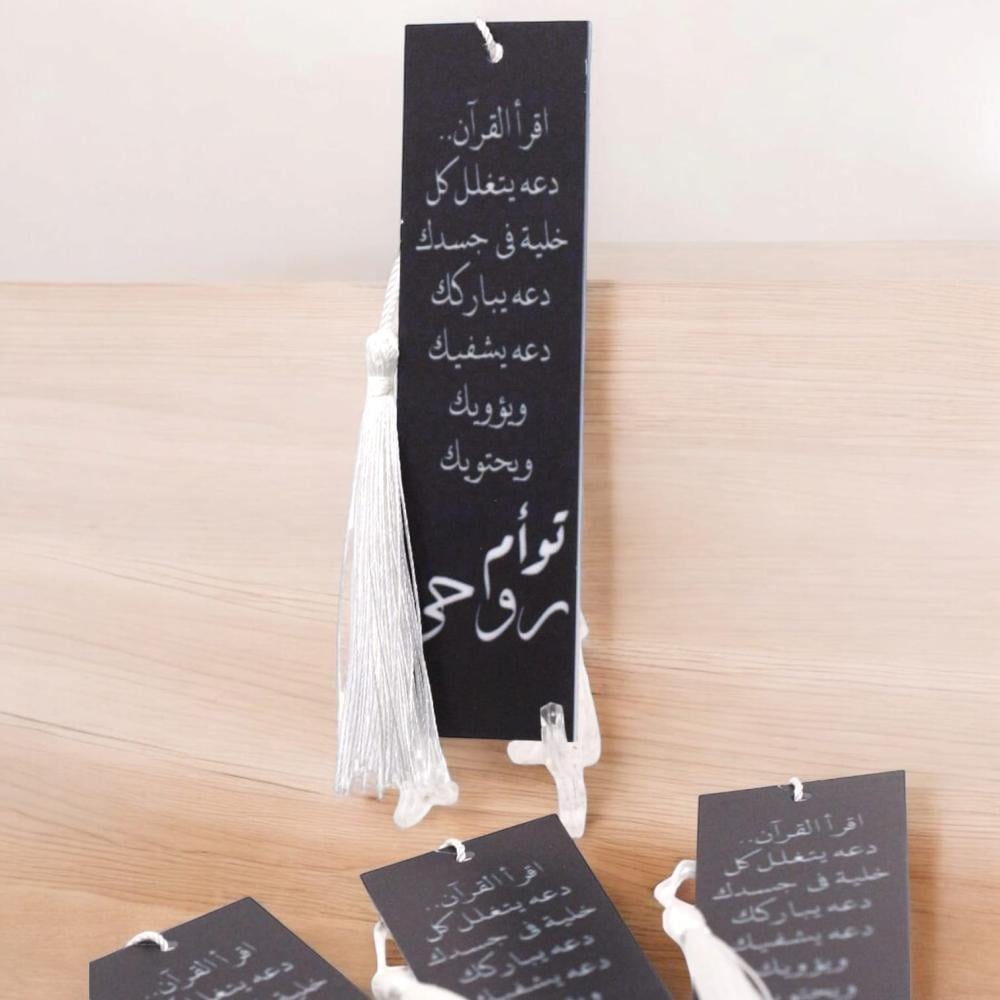 اقرأ القرآن..
دعه يتغلل كل
خلية فى جسدك
دعه يباركك
دعه يشفيك
ويؤويك
ويحتويك
توأم
روحي
اقرأ القرآن..
دعه يتغلل كل
خلية فى جسدك
دعه يباركك
دعه يشفيك
ويؤويك
ويحتويك
اقرأ القرآن..
دعه يتغلل كل
خلية فى جسدك
دعه يباركك
دعه يشفيك
اقرأ القرآن..
دعه يتغلل كل
خلية